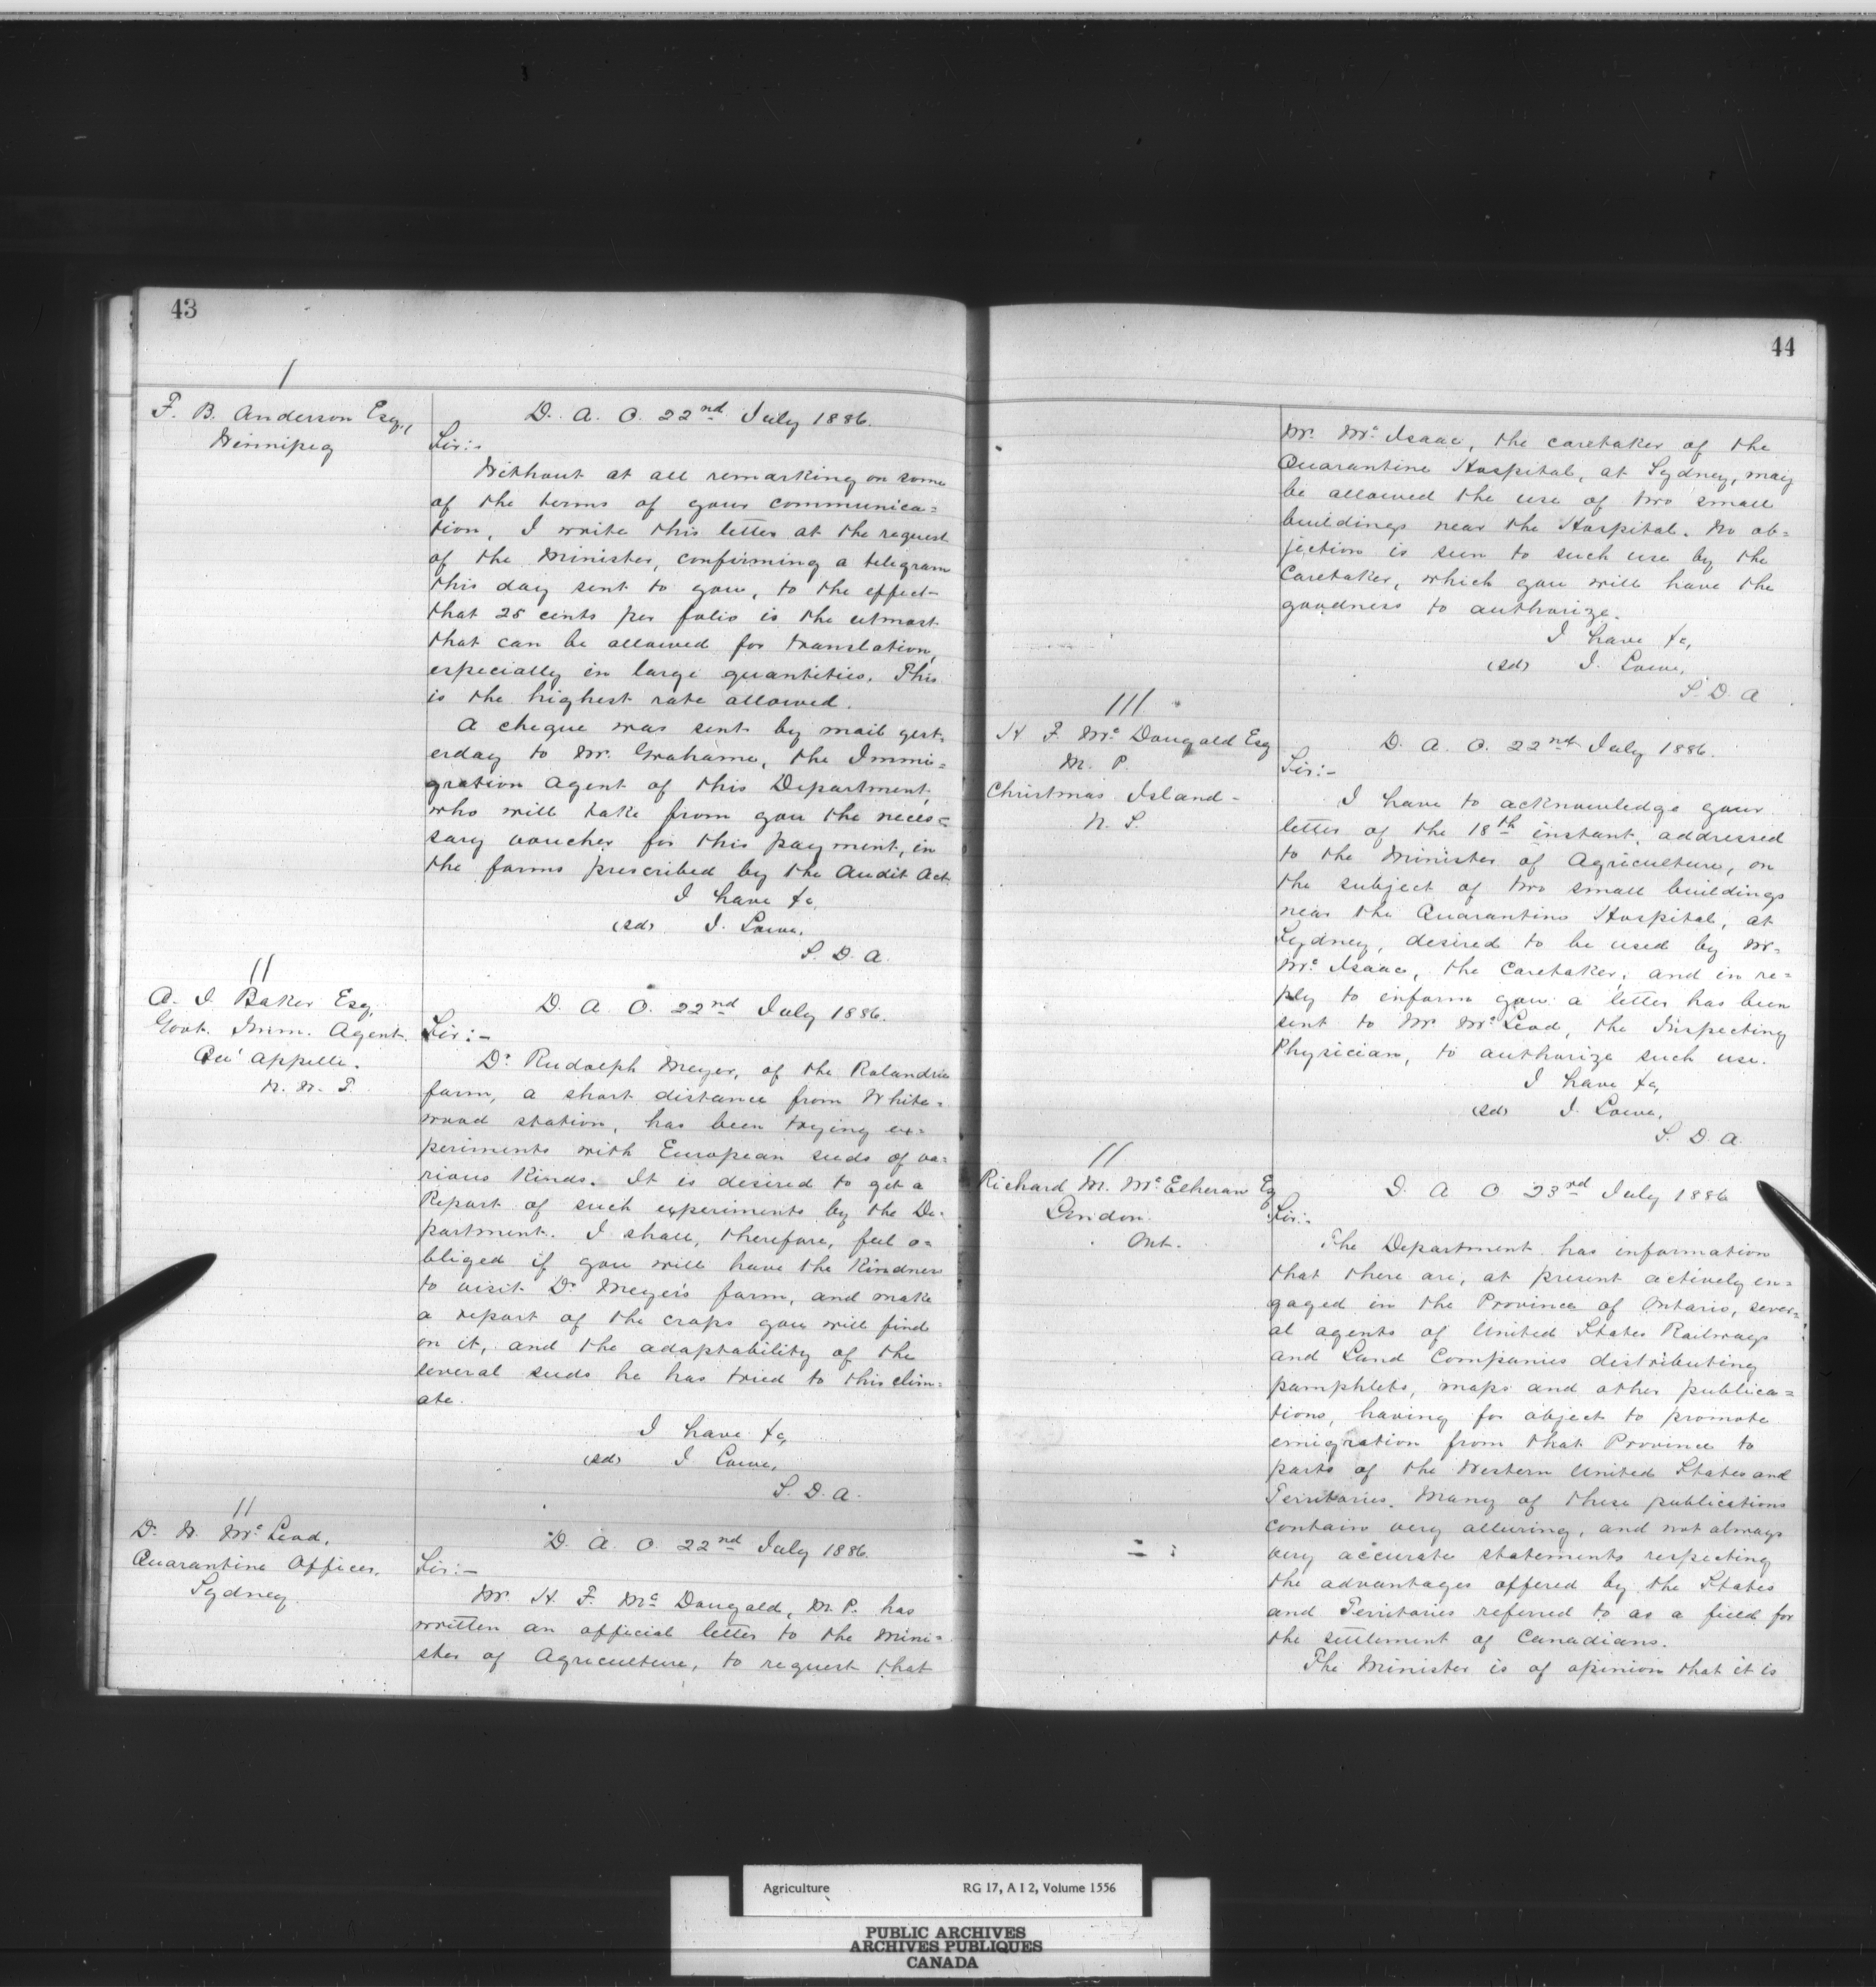 43
/
F. B. Anderson Esq.,
Winnipeg
D. A. O. 22nd July 1886.
Sir:-
Without at all remarking on some
of the terms of your communica=
tion, I write this letter at the request
of the Minister, confirming a telegram
this day sent to you, to the effect-
that 25 cents per folio is the utmost
that can be allowed for translation,
especially in large quantities. This
is the highest rate allowed.
A cheque was sent by mail yest-
erday to Mr. Grahame, the Immi=
gration Agent of this Department,
who will take from you the neces=
sary voucher for this payment, in
the forms prescribed by the Audit Act
I have &c,
(sd) J. Lowe,
S. D. A.
//
A. J. Baker Esq,
Govt. Imm. Agent.
Qu' Appelle.
N. W. T.
D. A. O. 22nd July 1886.
Sir:-
Dr Rudolph Meyer, of the Rolandrie
farm, a short distance from White=
wood station, has been trying ex=
periments with European seeds of va=
rious Kinds. It is desired to get a
Report of such experiments by the De-
partment. I shall, therefore, feel o=
bliged if you will have the Kindness
to visit Dr Meyer's farm, and make
a report of the crops you will find
on it, and the adaptability of the
several seeds he has tried to this clim=
ate.
I have &c,
(sd) J Lowe,
S. D. A.
//
Dr W. Mc Leod,
Quarantine Officer,
Sydney.
D. A. O. 22nd July 1886.
Sir:-
Mr. H. F. Mc Dougald, M. P. has
written an official letter to the Mini=
ster of Agriculture, to request that
44
Mr. Mc Isaac, the caretaker of the
Quarantine Hospital, at Sydney, may
be allowed the use of two small
buildings near the Hospital. No ob=
jection is seen to such use by the
Caretaker, which you will have the
goodness to authorize.
I have &c,
(sd) J. Lowe,
S. D. A
///
H. F. Mc Dougald Esq
M. P.
Christmas Island -
N. S.
D. A. O. 22nd July 1886.
Sir:-
I have to acknowledge your
letter of the 18th instant, addressed
to the Minister of Agriculture, on
the subject of two small buildings
near the Quarantine Hospital, at
Sydney, desired to be used by Mr.
Mc Isaac, the Caretaker, and in re=
ply to inform you a letter has been
sent to Mr Mc Leod, the Inspecting
Physician, to authorize such use.
I have &c,
(sd) J. Lowe,
S. D. A.
//
Richard M. Mc Elheran Eq
London.
Ont.
D. A. O 23rd July 1886
Sir:-
The Department has information
that there are, at present actively en=
gaged in the Province of Ontario, sever=
al agents of United States Railways
and Land Companies distributing
pamphlets, maps and other publica=
tions, having for object to promote
emigration from that Province to
parts of the Western United States and
Territories. Many of these publications
contain very alluring, and not always
very accurate statements respecting
the advantages offered by the States
and Territories referred to as a field for
the settlement of Canadians.
The Minister is of opinion that it is
Agriculture RG 17, A I 2, Volume 1556
PUBLIC ARCHIVES
ARCHIVES PUBLIQUES
CANADA